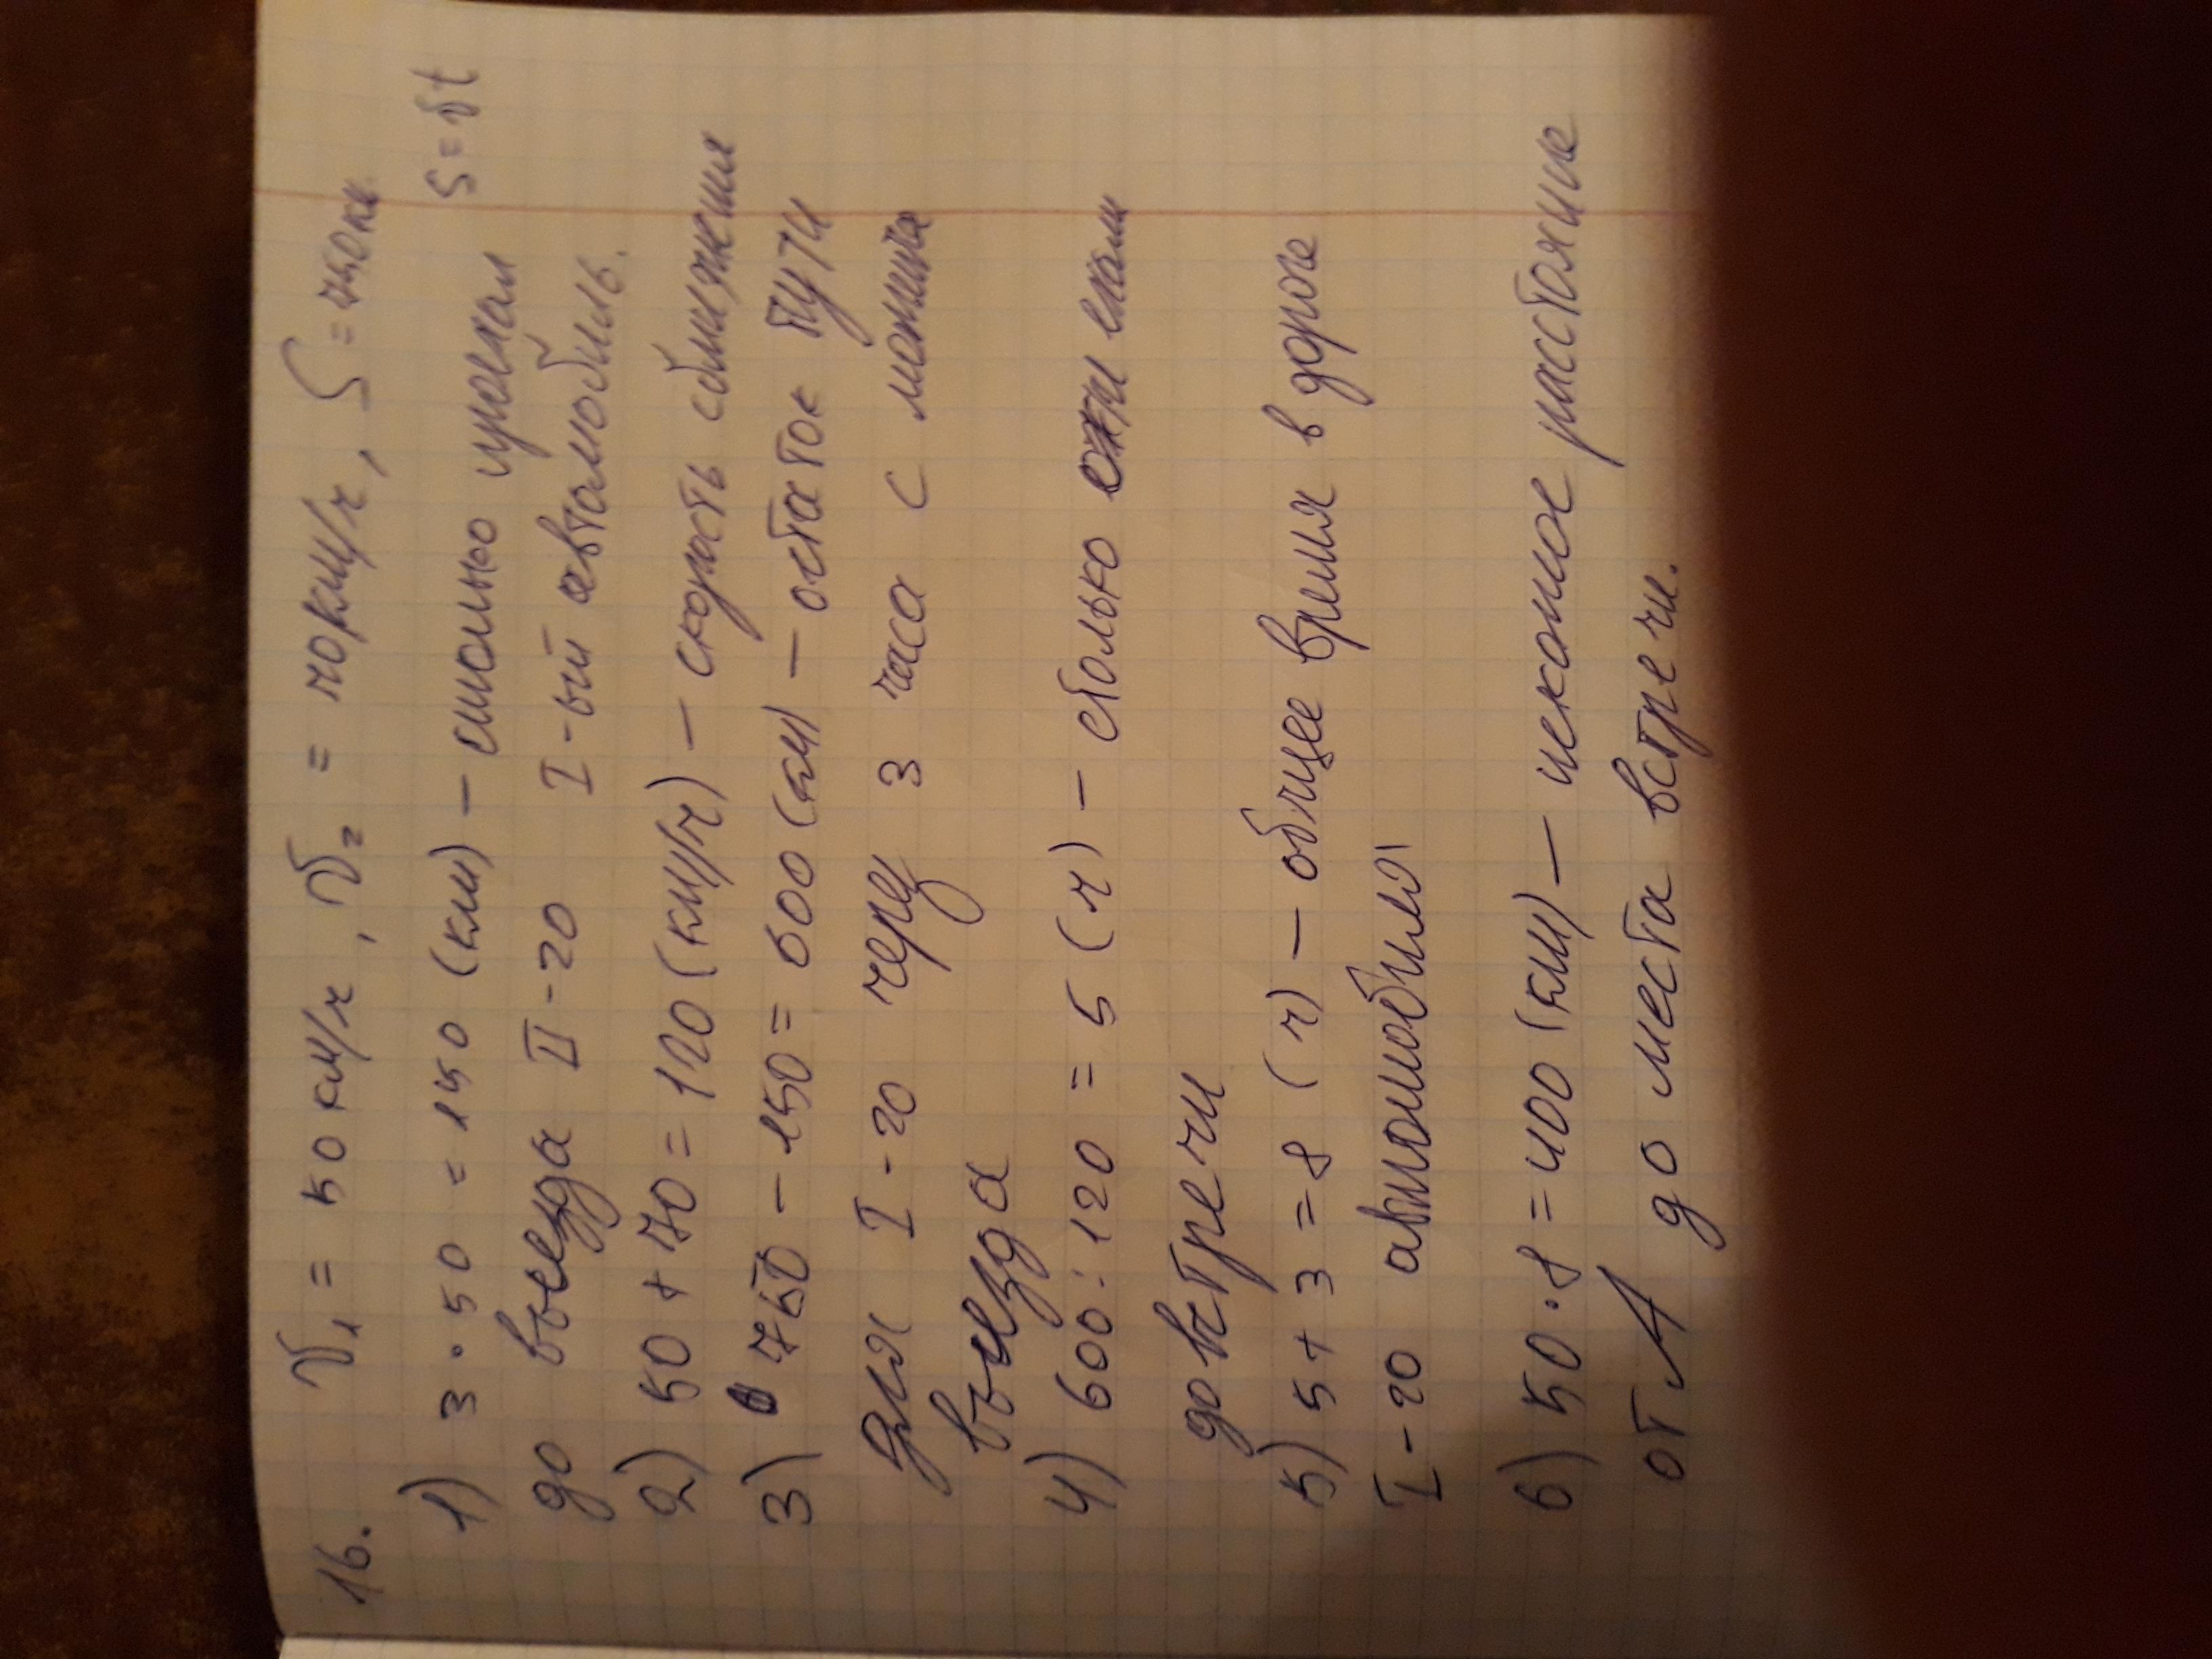 16. V₁ = 50 км/ч, V₂ = 70 км/ч, S = 750 км.
1) 3 · 50 = 150 (км) – сколько проехал S = Vt
до выезда II-го I-ый автомобиль.
2) 50 + 70 = 120 (км/ч) – скорость сближения
3) 750 – 150 = 600 (км) – остаток пути
для I-го через 3 часа с момента
выезда
4) 600 : 120 = 5 (ч) – столько они ехали
до встречи
5) 5 + 3 = 8 (ч) – общее время в дороге
I-го автомобиля
6) 50 · 8 = 400 (км) – искомое расстояние
от А до места встречи.